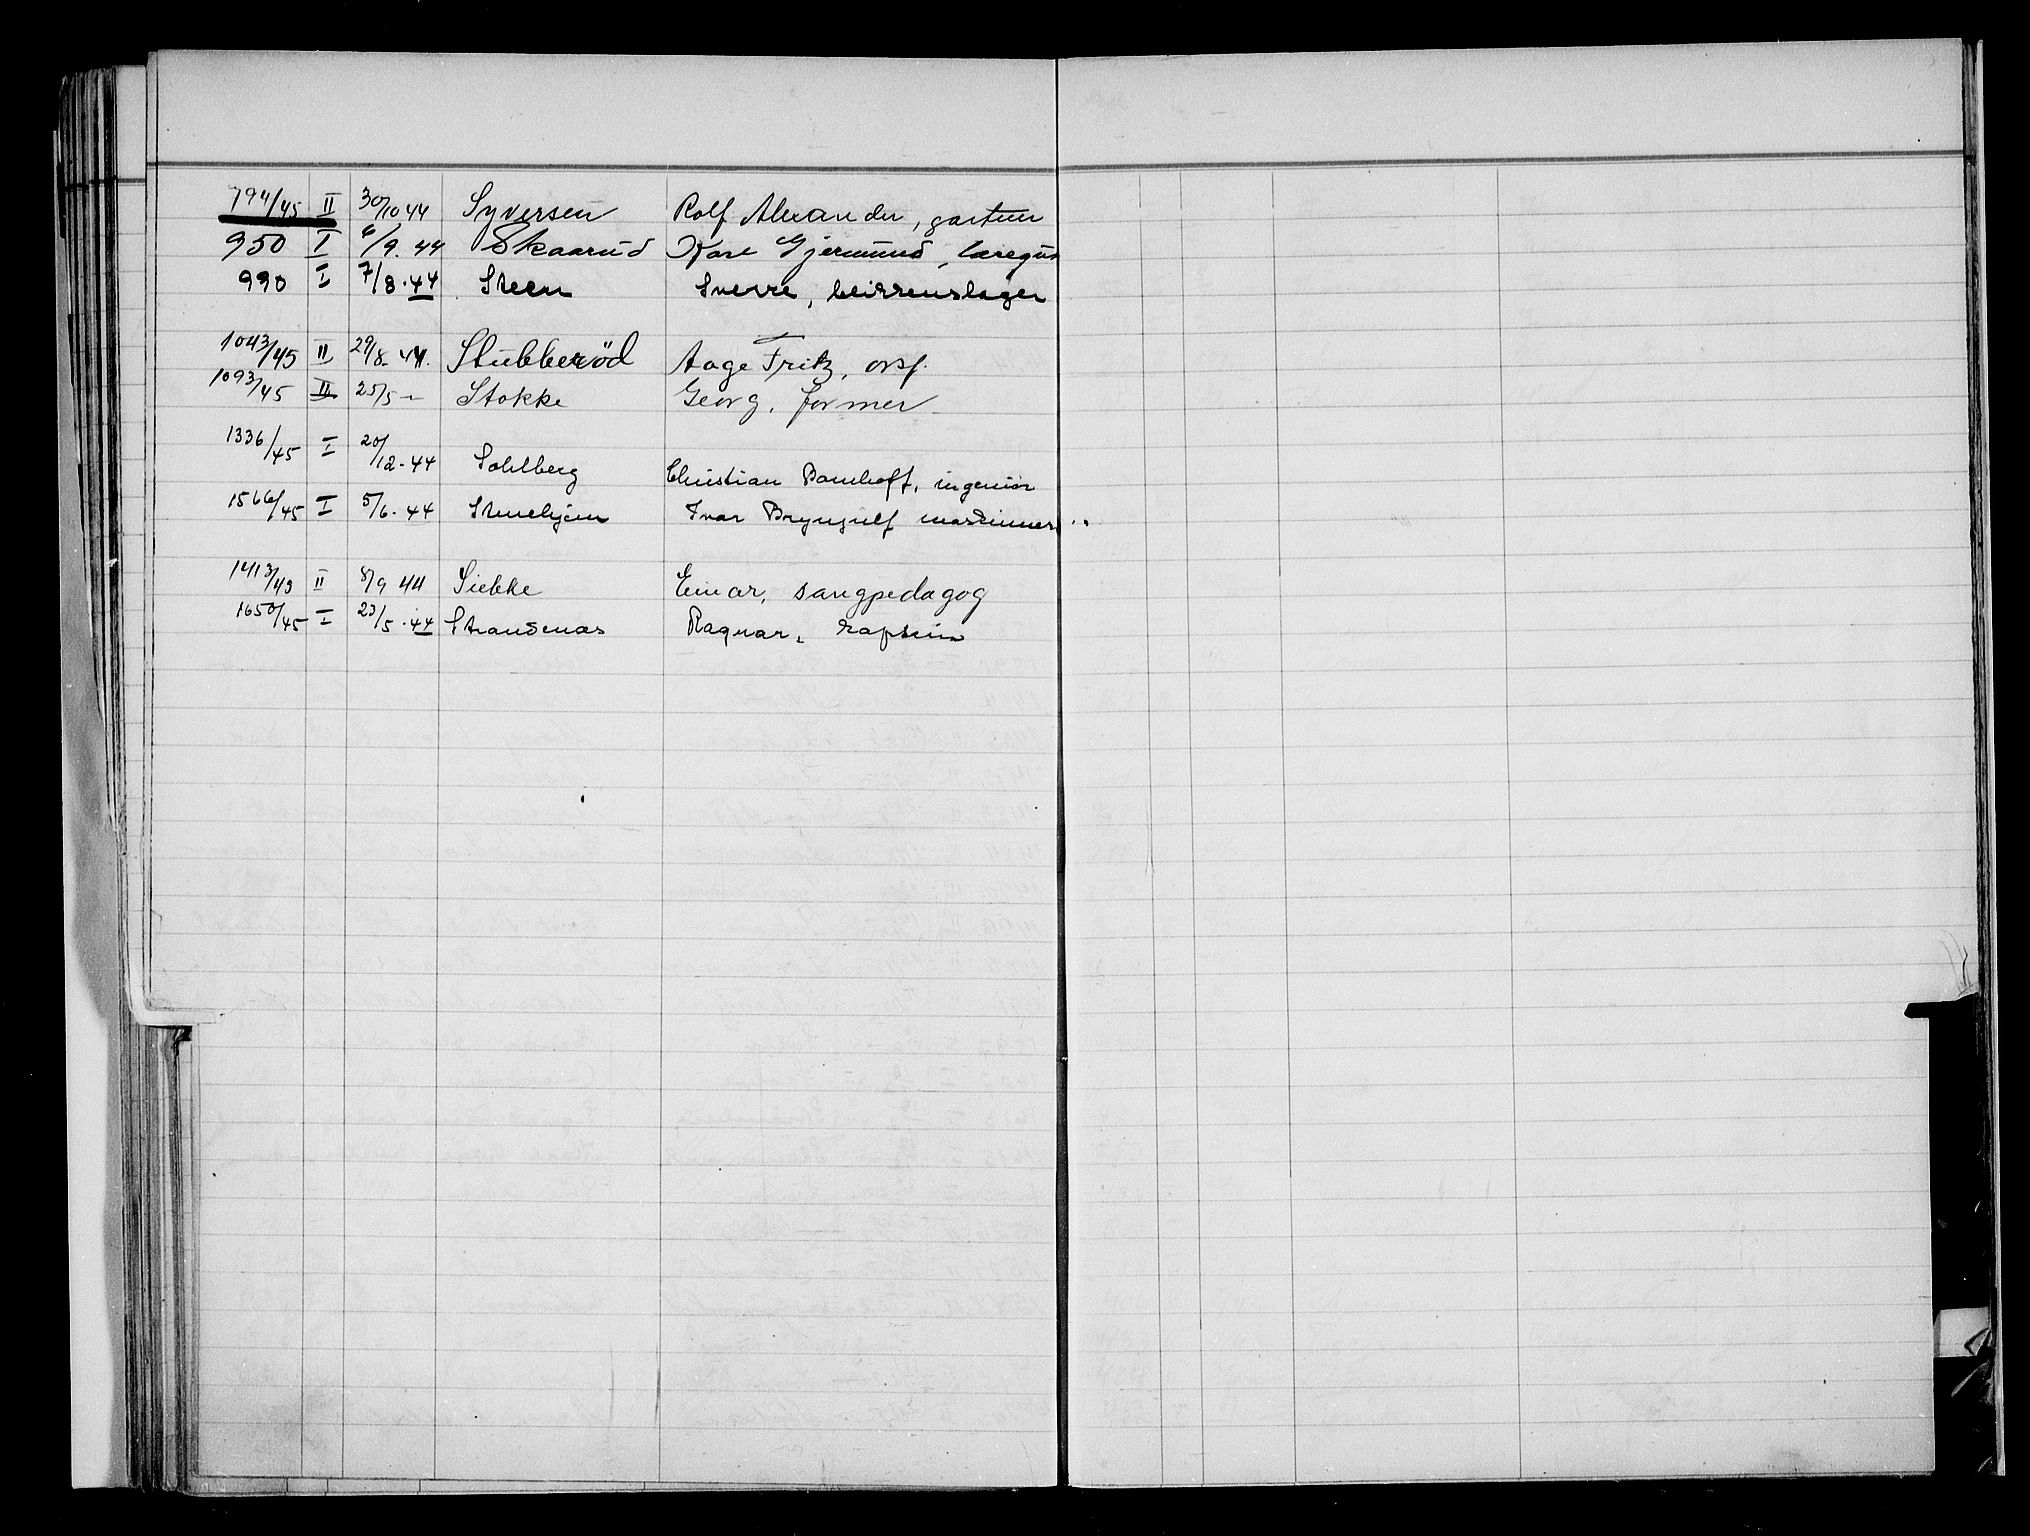 794/45 II 30/10 44 Syversen Rolf Alexander, gartner
950 I 6/9. 44 Skaarud Kare Gjermund,
990 I 7/8. 44 Steen Sverre, blikkenslager
1043/45 II 29/8. 44. Stubberöd Aage Fritz,
1093/45 II 25/5 - Stokke Georg, former
1336/45 I 20/12. 44 Sohlberg Christian ingeniör
1566/45 I 5/6. 44 Stenehjem Ivar Bryngulf
1413/43 II 8/9 44 Siebke Einar, sangpedagog
1650/45 I 23/5. 44 Strandenæs Ragnar, kaptein